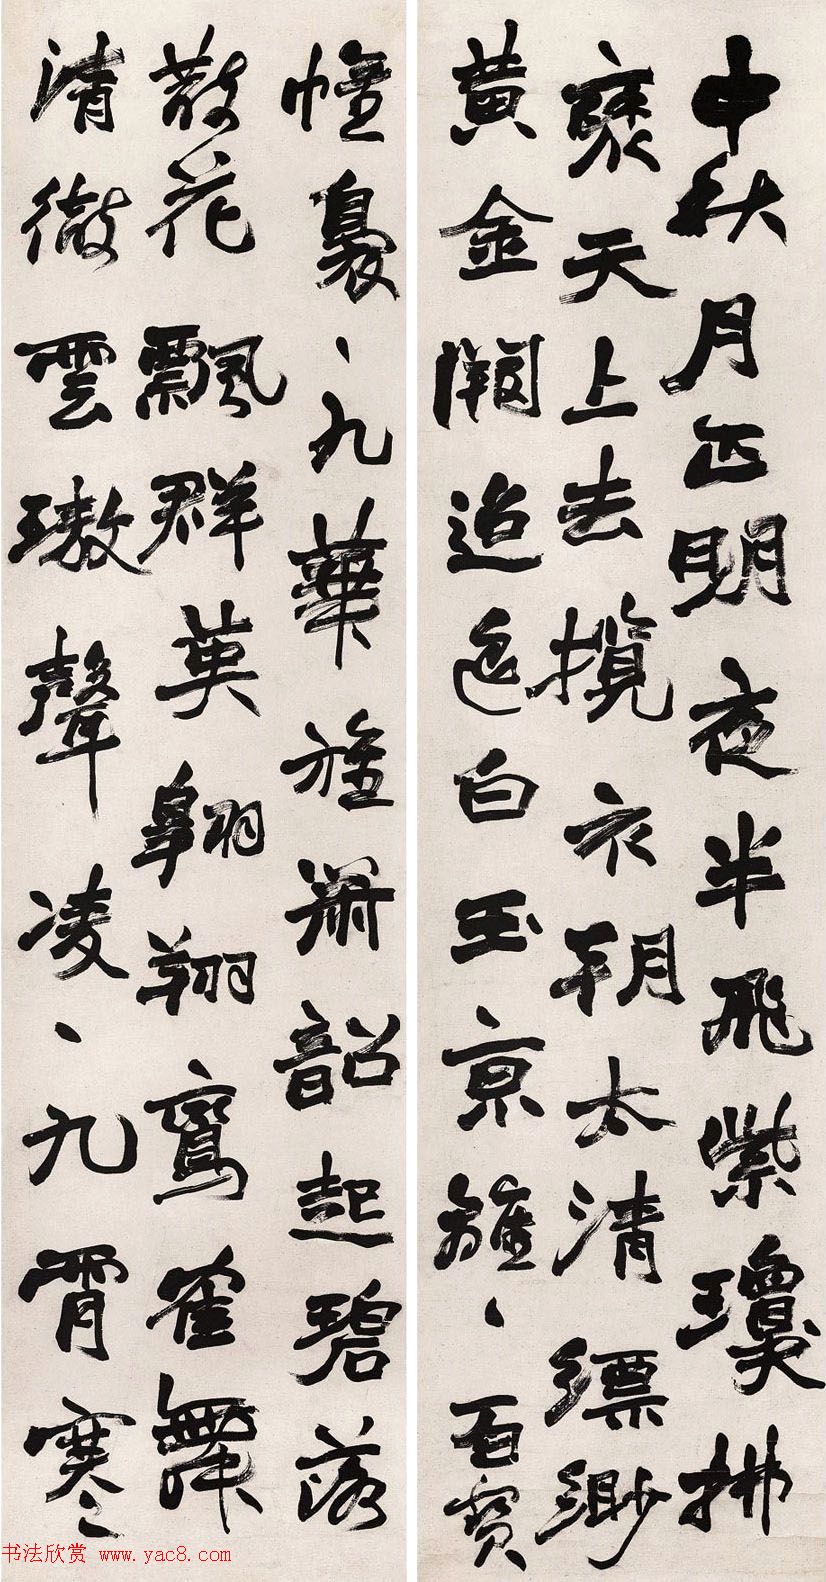 中秋月正明夜半飛紫瓊拂
褎天上去攬衣朝太清縹緲
黃金闕迢迢白玉京離、百寶
幢裊、九華旌簫韶起碧落
散花飄群英翱翔鸞雀舞
清徹雲璈聲凌、九霄寒
书法欣赏 www.yac8.com